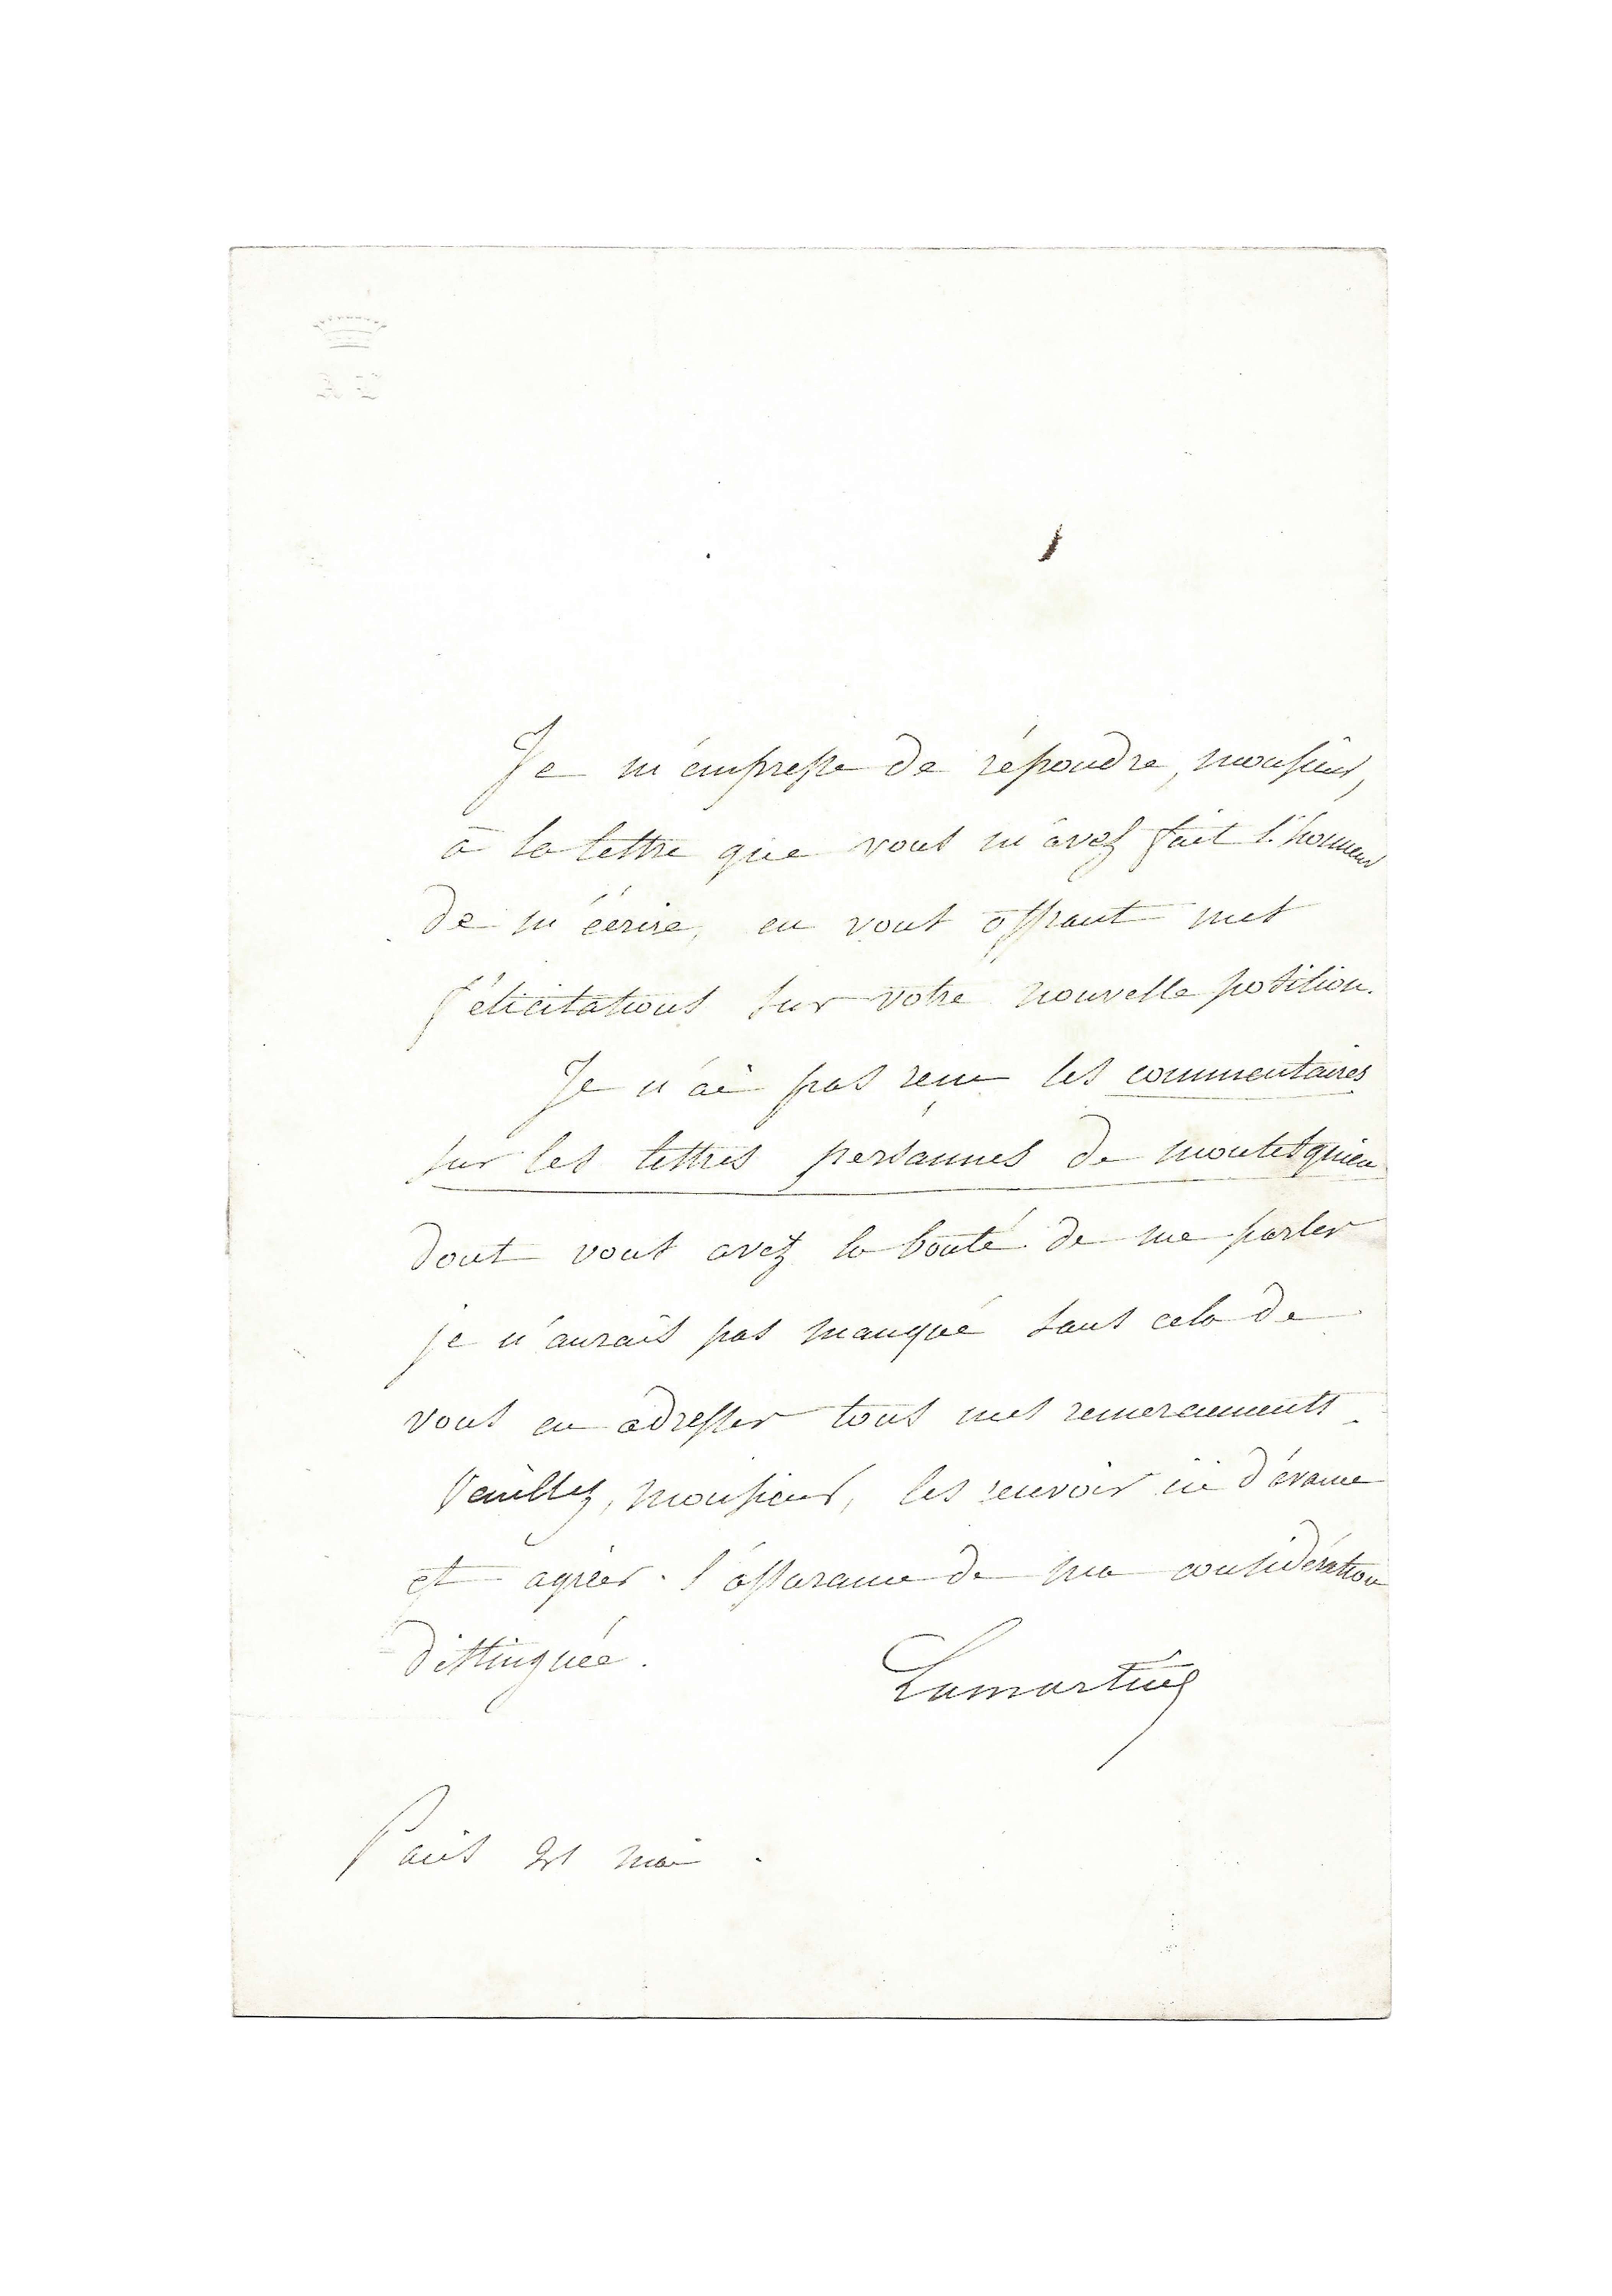 Je m'empresse de répondre, monsieur,
à la lettre que vous m'avez fait l'honneur
de m'écrire, en vous offrant mes
félicitations sur votre nouvelle position.
Je n'ai pas reçu les commentaires
sur les lettres persannes de montesquieu
dont vous avez la bonté de me parler
je n'aurais pas manqué sans cela de
vous en adresser tous mes remerciements.
Veuillez, monsieur, les recevoir ici d'avance
et agréer l'assurance de ma considération
distinguée.
Lamartine
Paris 21 mai